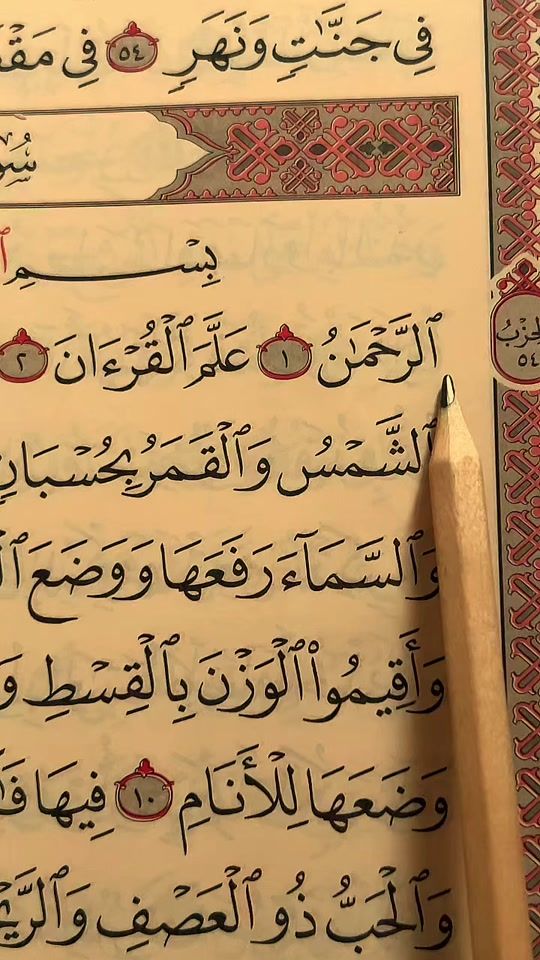 فِي جَنَّٰتٖ وَنَهَرٖ ٥٤ فِي
بِسۡمِ
ٱلرَّحۡمَٰنُ ١ عَلَّمَ ٱلۡقُرۡءَانَ ٢
ٱلشَّمۡسُ وَٱلۡقَمَرُ بِحُسۡبَانٖ
وَٱلسَّمَآءَ رَفَعَهَا وَوَضَعَ
وَأَقِيمُواْ ٱلۡوَزۡنَ بِٱلۡقِسۡطِ
وَضَعَهَا لِلۡأَنَامِ ١٠ فِيهَا
وَٱلۡحَبُّ ذُو ٱلۡعَصۡفِ
الحِزْبُ
٥٤